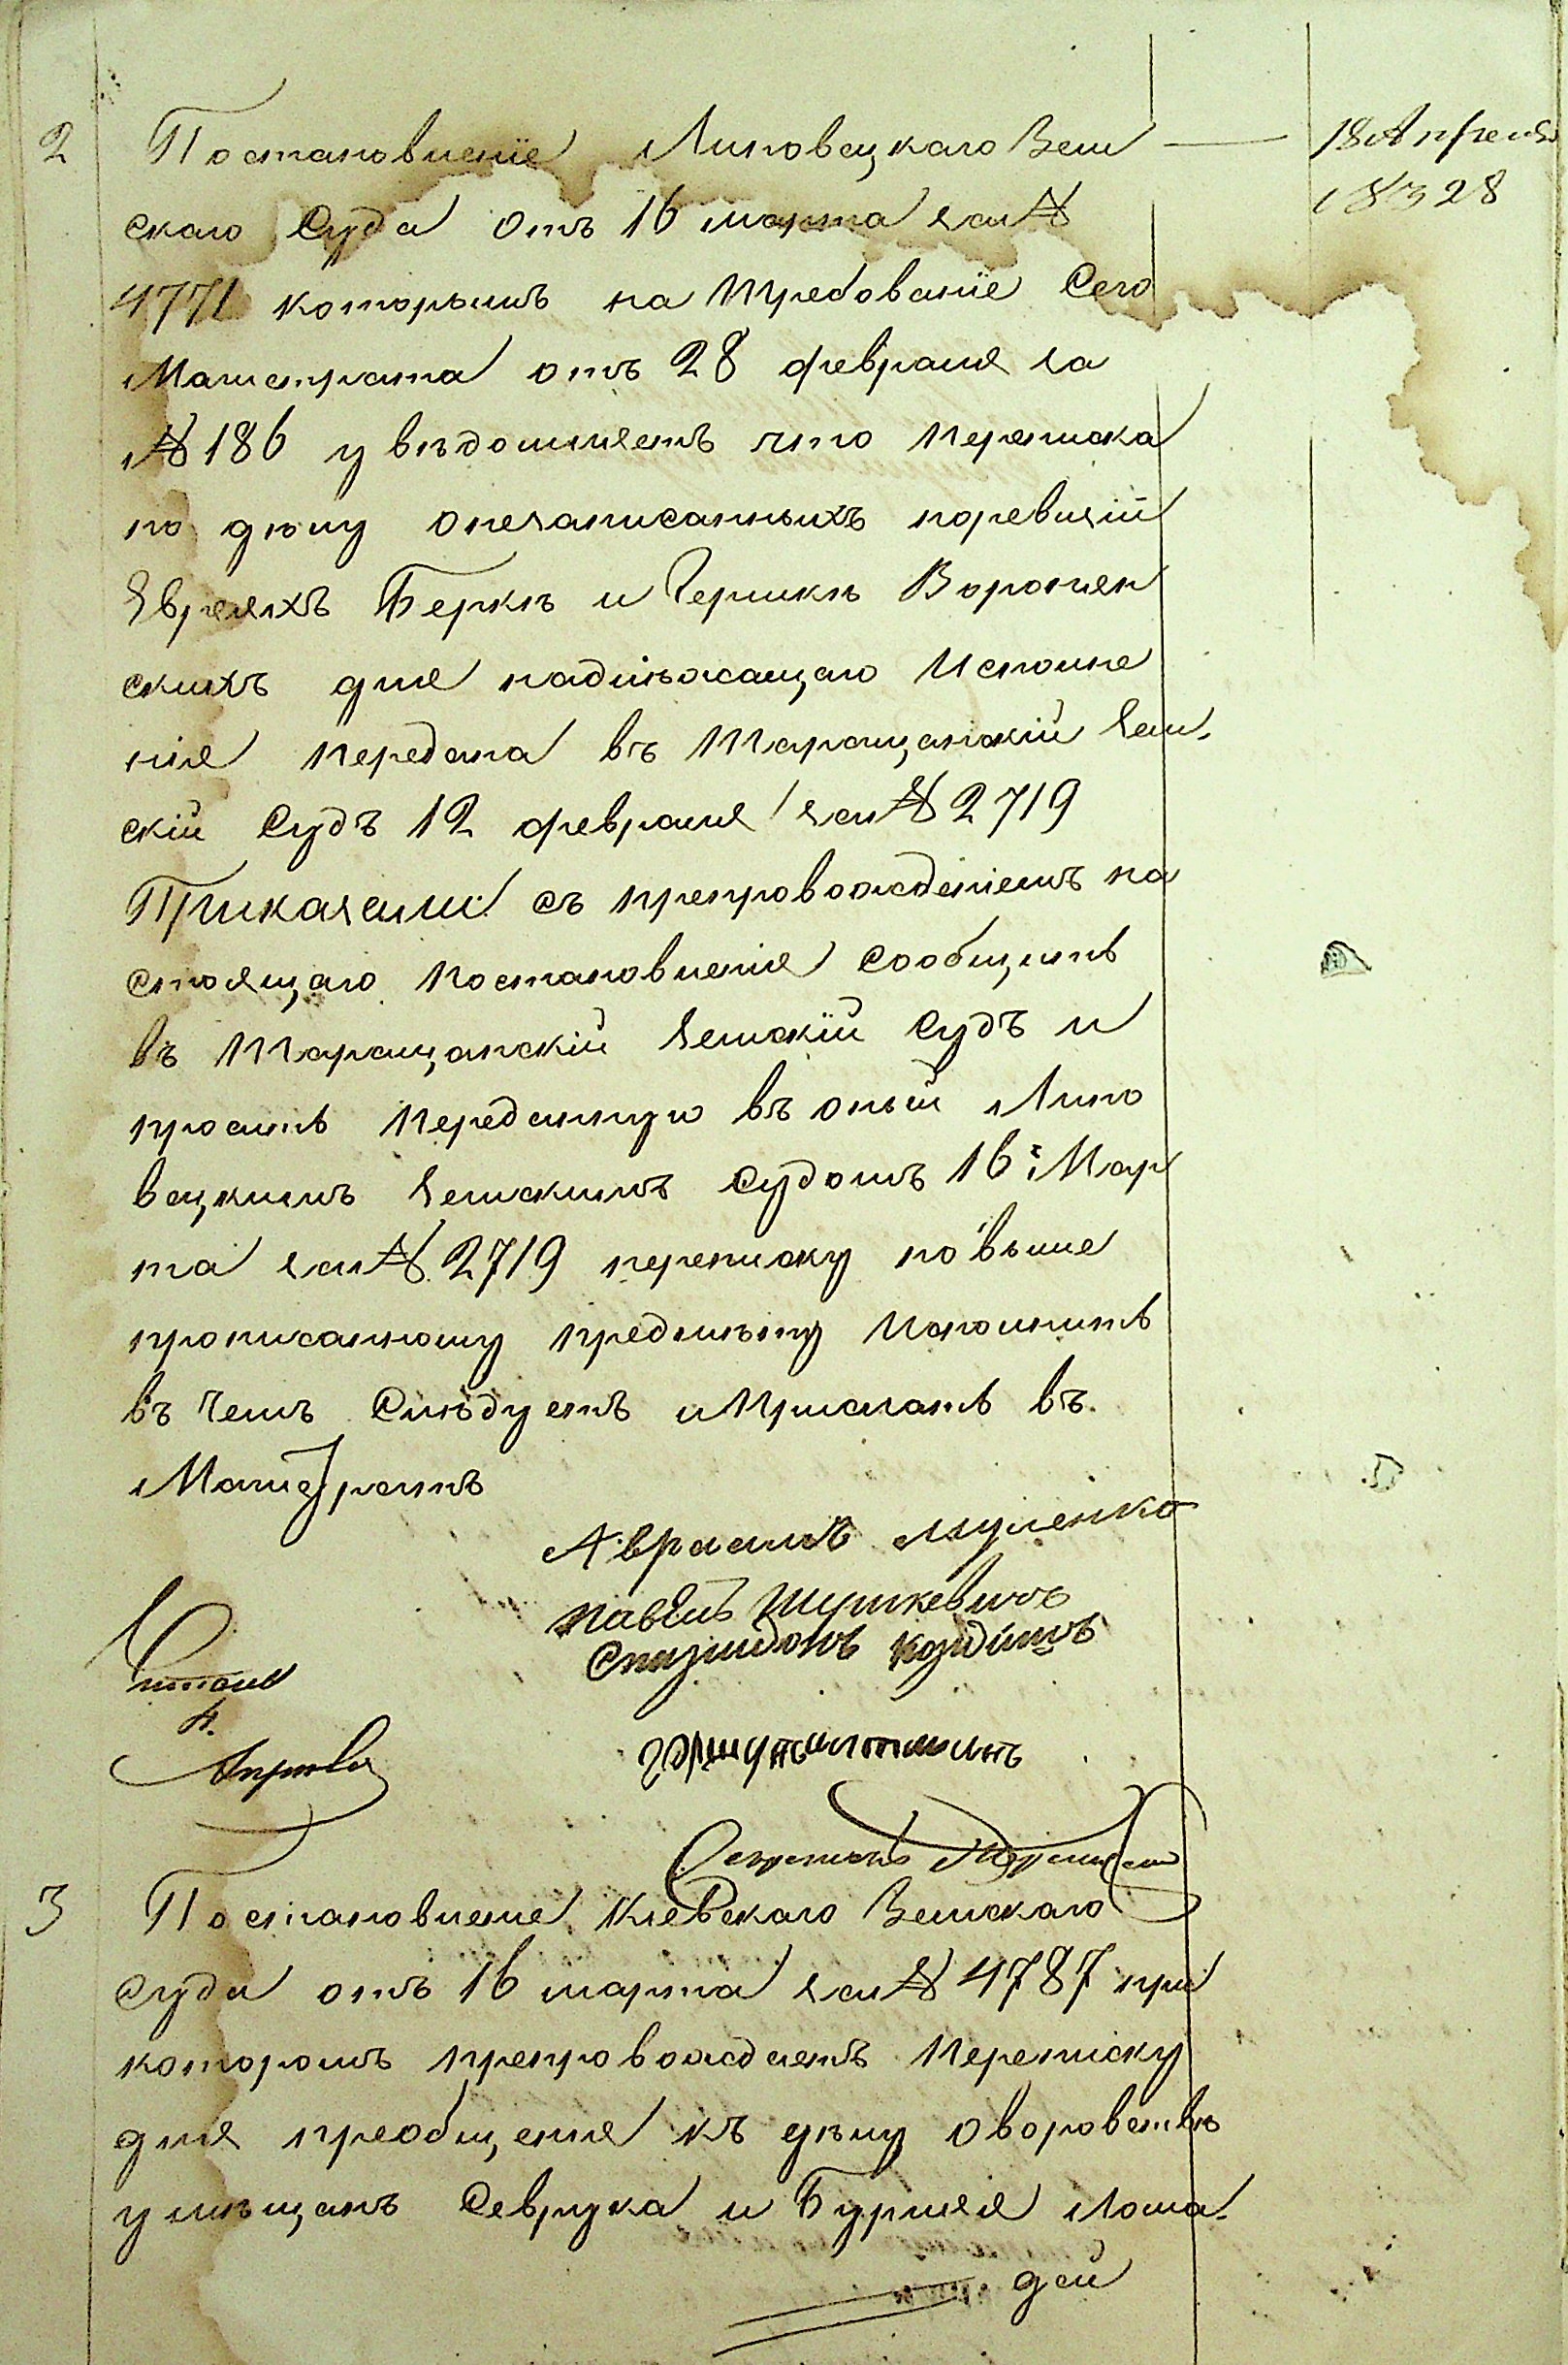 2 Постановленіе Липовецкаго Зем — 18 Апреля
1832 8
скаго Суда отъ 16 марта за №
4771 которымъ на требованіе Сего
Магистрата отъ 28 февраля за
№ 186 увѣдомляетъ что переписка
по дѣлу онезаписанныхъ поревизіи
Евреяхъ Беркѣ и Гершкѣ Воронян
скихъ для надлѣжащаго Исполне
нія передана въ Таращанскій Зем.
скій Судъ 12 февраля за № 2719
Приказали: съ препровожденіемъ на
стоящаго постановленія сообщить
въ Таращанскій Земскій Судъ и
просить переданную въ оный Липо
вецкимъ Земскимъ Судомъ 16 Мар
та за № 2719 переписку по выше
прописанному предмѣту Исполнить
въ чемъ Слѣдуетъ и прислать въ
Магистратъ
Авраамъ
Павелъ Шушкевичъ
Спиридонъ
Читалъ
Секретарь
3 Постановленіе Кіевскаго Земскаго
Суда отъ 16 марта за № 4787 при
которомъ препровождаетъ переписку
для преобщенія къ дѣлу оворовствѣ
умѣщанъ Севрука и Бурлея лоша.
дей